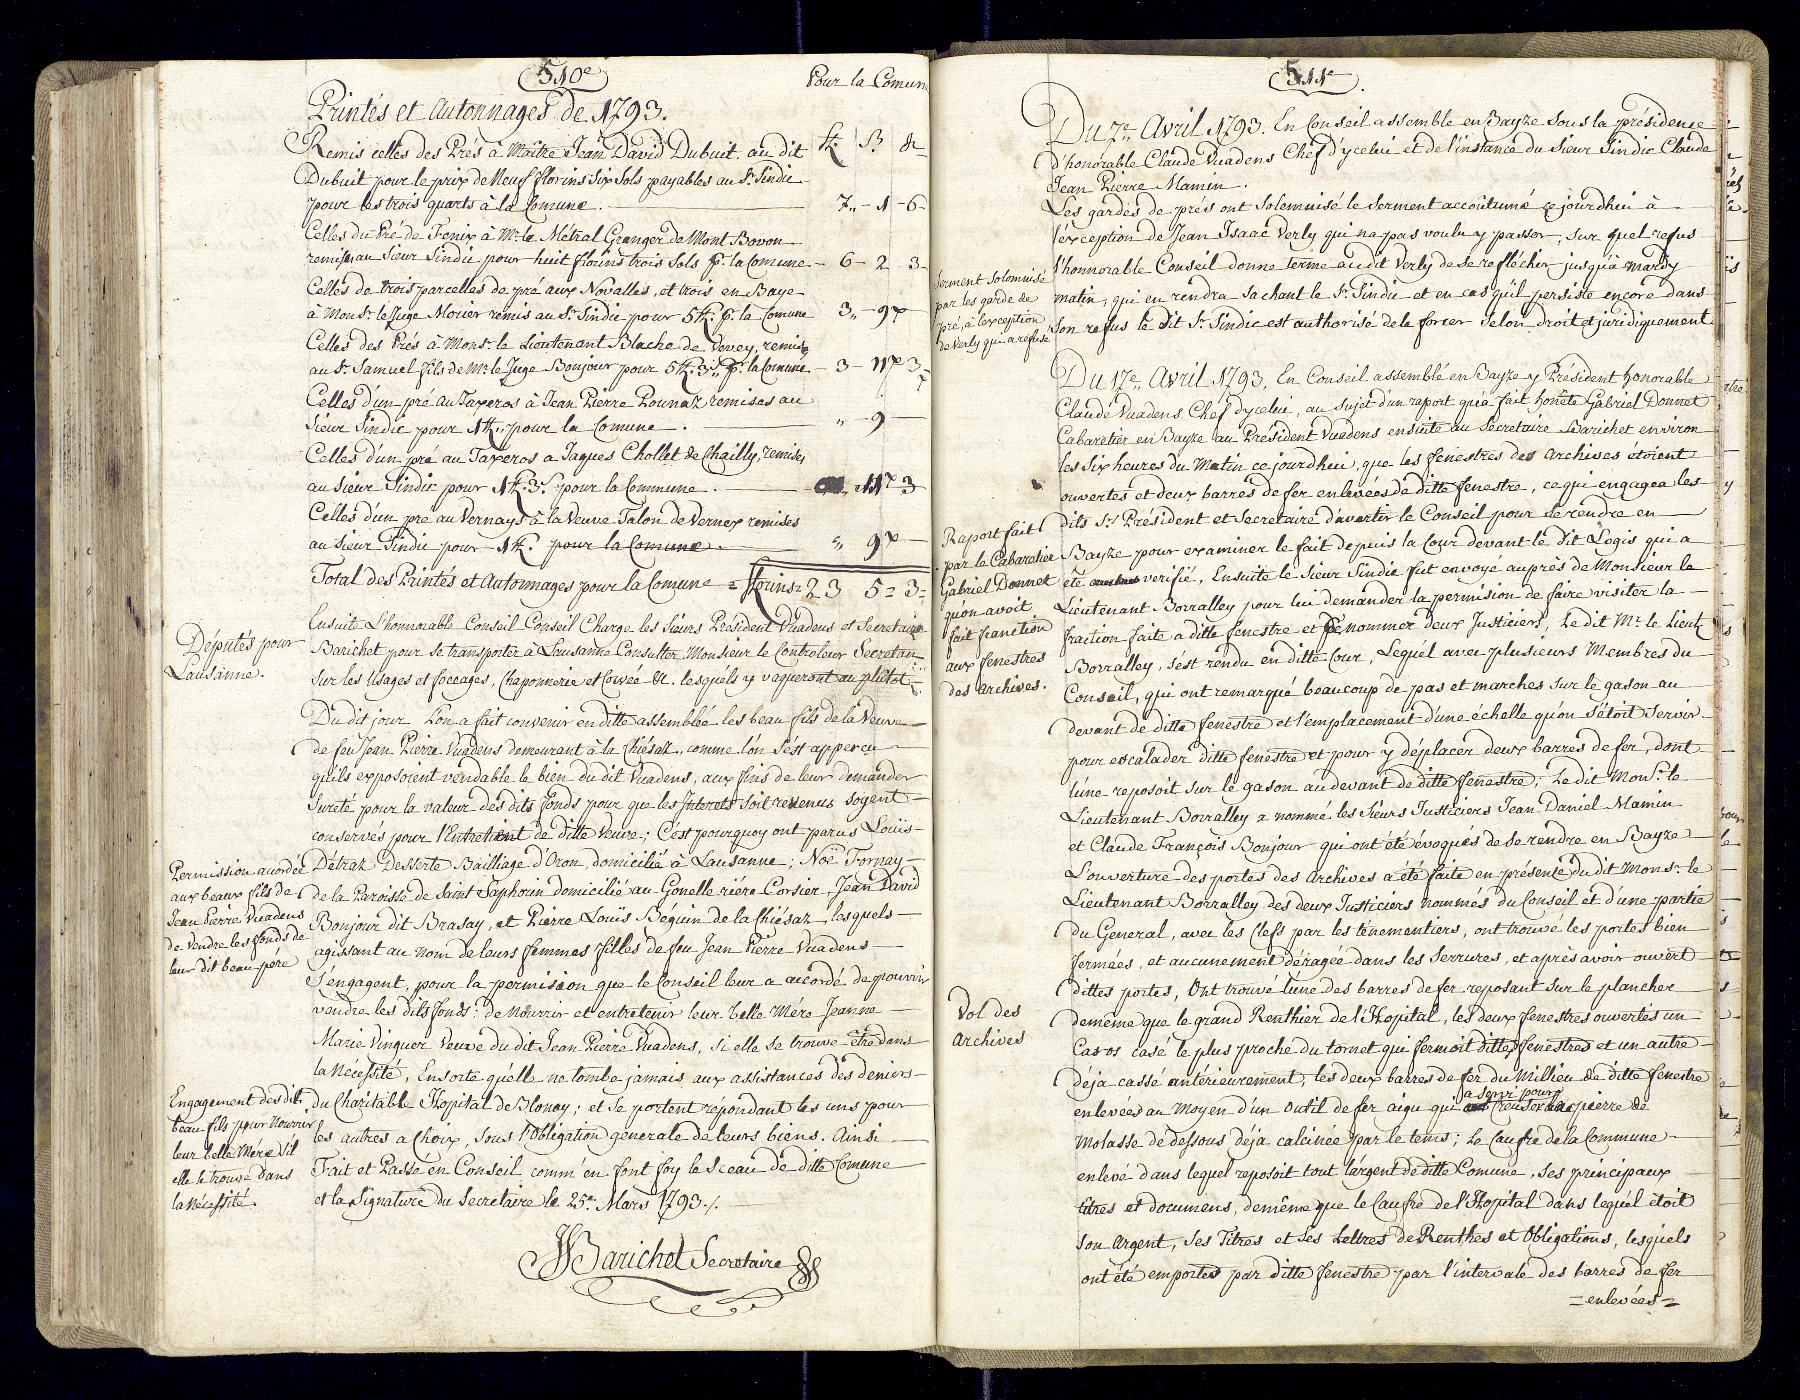 510e
Pour la Comune
Printés et Autonnages de 1793.
Remis celles des Prés à Maître Jean David Dubuit. au dit
Dubuit pour le prix de Neuf florins six sols payables au Sr. Sindic
pour les trois quarts à la Comune. 7„ - 1 - 6
Celles du Pré de Fenix à Mr. le Métral Granger de Mont Bovon
remises au Sieur Sindic pour huit florins trois sols pr. la Comune - 6 - 2 - 3
Celles de trois parcelles de pré aux Novalles, et trois en Baye
à Monsr. le Juge Morier remis au Sr. Sindic pour 5 fl. pr. la Comune 3„ - 9
Celles des Prés à Monsr. le Lieutenant Blache de Vevey, remises
au Sr. Samuel fils de Mr. le Juge Bonjour pour 5 fl. 3 s. pr. la Comune - 3 - 11 3
Celles d'un pré au Taxeros à Jean Pierre Pounaz remises au
Sieur Sindic pour 1 fl. pour la Comune. „ 9
Celles d'un pré au Taxeros a Jaques Chollet de Chailly, remises
au Sieur Sindic pour 1 fl. 3 s. pour la Commune. „ 11 3
Celles d'un pré au Vernays à la Veuve Talon de Vernex remises
au Sieur Sindic pour 1 fl. pour la Comune. „ 9
Total des Printés et Autonnages pour la Comune = florins = 23 5 = 3 =
Députés pour
Lausanne.
Ensuite L'honnorable Conseil Conseil Charge les Sieurs President Vuadens et Secretaire
Barichet pour se transporter à Lausanne Consulter Monsieur le Controleur Secretan
sur les Usages et foccages, Chaponnerie et Corvée &c. lesquels y vaqueront au plûtot
Du dit jour Lon a fait convenir en ditte assemblée les beau fils de la Veuve
de feu Jean Pierre Vuadens demeurant à la Chiésaz, comme l'on s'ést apperçu
qu'ils exposoient vendable le bien du dit Vuadens, aux fins de leur demander
Sureté pour la valeur des dits fonds pour que les Interets soit revenus soyent
conservés pour l'Entretient de ditte Veuve; C'est pourquoy ont parus Louïs
Permission acordée
aux beaux fils de
Jean Pierre Vuadens
de Vendre les fonds de
leur dit beau-père
Détraz Desserte Bailliage d'Oron domicilié à Lausanne; Noë Fornay
de la Paroisse de Saint Saphorin domicilié au Gonelle riére Corsier, Jean David
Bonjour dit Brasay, et Pierre Louïs Béguin de la Chiésaz lesquels
agissant au nom de leurs femmes filles de feu Jean Pierre Vuadens
S'éngagent, pour la permision que le Conseil leur a accordé de pouvoir
vendre les dits fonds: de Nourrir et entretenir leur belle Mére Jeanne
Marie Vinquer Veuve du dit Jean Pierre Vuadens, si elle se trouve être dans
la Nécessité, Ensorte qu'elle ne tombe jamais aux assistances des deniers
Engagement des dits
beau fils pour Nourrir
leur belle Mére s'il
elle se trouve dans
la Nécessité
du Charitable Hopital de Blonay; et se portent répondant les uns pour
les autres a Choix, sous l'Obligation generale de leurs biens. Ainsi
Fait et Passé en Conseil comm'en font foy le Sceau de ditte Comune
et la Signature du Secretaire le 25e. Mars 1793./.
JfBarichet Secretaire
511e
Du 7e. Avril 1793. En Conseil assemblé en Bayze sous la présidence
d'honorable Claude Vuadens Chef d'ycelui et de l'instance du Sieur Sindic Claude
Jean Pierre Mamin.
Les gardes de prés ont solemnisé le Serment accoûtumé cejourdhui à
l'éxception de Jean Isaac Verly qui na pas voulu y passer, sur quel refus
Serment solemnisé
par les garde de
pré, à l'exception
de Verly qui a refusé
l'honnorable Conseil donne terme au dit Verly de se refléchir jusqu'à mardy
matin, qui en rendra sachant le Sr. Sindic et en cas qu'il persiste encore dans
son refus le dit Sr. Sindic est authorisé de le forcer selon droit et juridiquement.
Du 17e. Avril 1793. En Conseil assemblé en Bayze y Président honorable
Claude Vuadens Chef d'ycelui, au sujet d'un raport qu'a fait honête Gabriel Donnet
Cabaretier en Bayze au Président Vuadens ensuite au Secretaire Barichet environ
les six heures du Matin ce jourdhui, que les fenestres des Archives étoient
ouvertes et deux barres de fer enlevées de ditte fenestre, ce qui engagea les
dits Srs. Président et Secretaire d'avertir le Conseil pour se rendre en
Raport fait
par le Cabaretier
Gabriel Donnet
qu'on avoit
fait franction
aux fenestres
des archives.
Bayze pour examiner le fait depuis la Cour devant le dit Logis qui a
été verifié, Ensuite le Sieur Sindic fut envoyé auprès de Monsieur le
Lieutenant Borralley pour lui demander la permision de faire visiter la
fraction faite a ditte fenestre et de nommer deux Justiciers, Le dit Mr. le Lieut.
Borralley, s'ést rendu en ditte Cour, Lequel avec plusieurs Membres du
Conseil, qui ont remarqué beaucoup de pas et marches sur le gason au
devant de ditte fenestre et l'emplacement d'une échelle qu'on s'étoit servir
pour escalader ditte fenestre et pour y déplacer deux barres de fer, dont
l'une reposoit sur le gason au devant de ditte fenestre; Le dit Monsr. le
Lieutenant Borralley a nommé les Sieurs Justiciers Jean Daniel Mamin
et Claude François Bonjour qui ont été évoqués de se rendre en Bayze
L'ouverture des portes des Archives a été faite en présence du dit Monsr. le
Lieutenant Borralley des deux Justiciers nommés du Conseil et d'une partie
du General, avec les Clefs par les ténementiers, ont trouvé les portes bien
fermées, et aucunement déragée dans les serrures, et après avoir ouvert
Vol des
Archives
dittes portes, Ont trouvé l'une des barres de fer reposant sur le plancher
demême que le grand Renthier de l'Hopital, les deux fenestres ouvertes un
Caros casé le plus proche du tornet qui fermoit dittes fenestres et un autre
déja cassé antérieurement, les deux barres de fer du Millieu de ditte fenestre
enlevées au moyen d'un outil de fer aigu qui a servi pour creuser la pierre de
Molasse de dessous déja calcinée par le tems; Le Caufre de la Commune
enlevé dans lequel reposoit tout l'argent de ditte Comune, ses principaux
titres et documens, demême que le Caufre de l'Hopital dans lequél étoit
son Argent, ses Titres et ses Lettres de Renthes et Obligations, lesquels
ont été emportés par ditte fenestre par l'intervale des barres de fer
= enlevées =